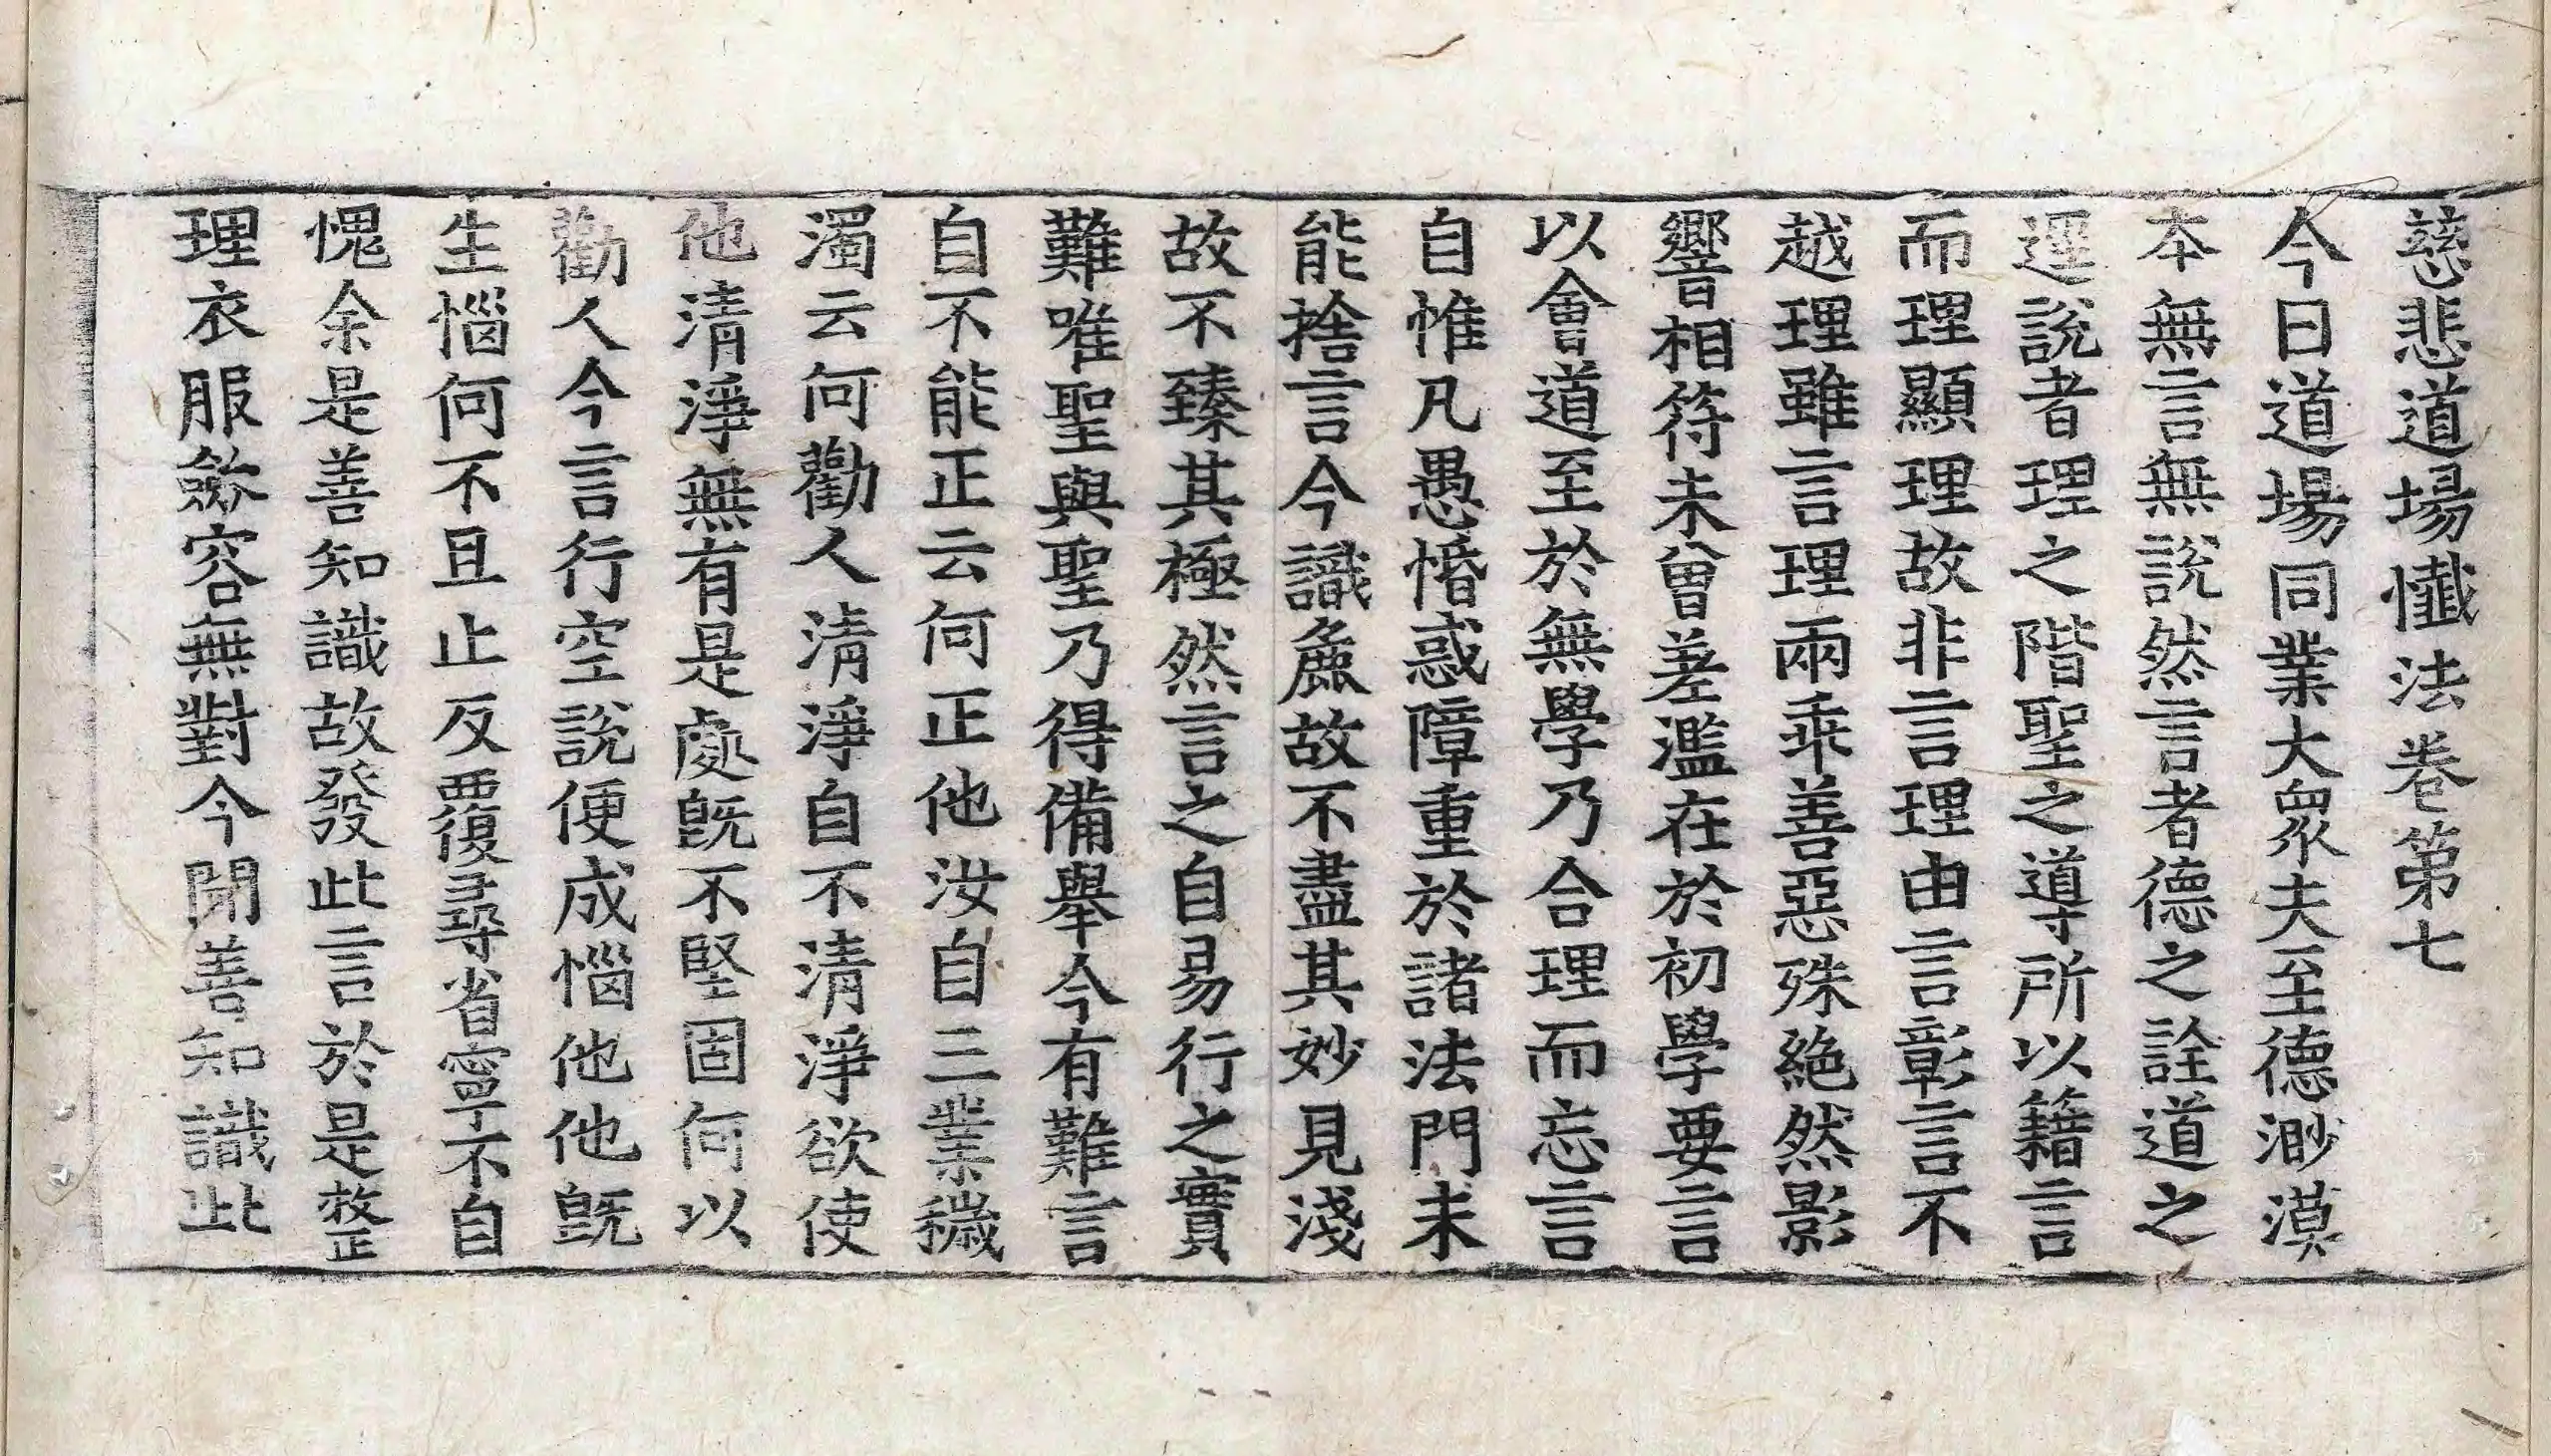 慈悲道場懺法卷第七
今日道場同業大衆夫至德渺漠
本無言無說然言者德之詮道之
逕說者理之階聖之導所以籍言
而理顯理故非言理由言彰言不
越理雖言理兩乖善惡殊絶然影
響相符未曾差濫在於初學要言
以會道至於無學乃合理而忘言
自惟凡愚惛惑障重於諸法門未
能捨言今識麁故不盡其妙見淺
故不臻其極然言之自易行之實
難唯聖與聖乃得備舉今有難言
自不能正云何正他汝自三業穢
濁云何勸人清淨自不清淨欲使
他清淨無有是處旣不堅固何以
勸人今言行空說便成惱他他旣
生惱何不且止反覆尋省寧不自
愧余是善知識故發此言於是整
理衣服斂容無對今聞善知識此